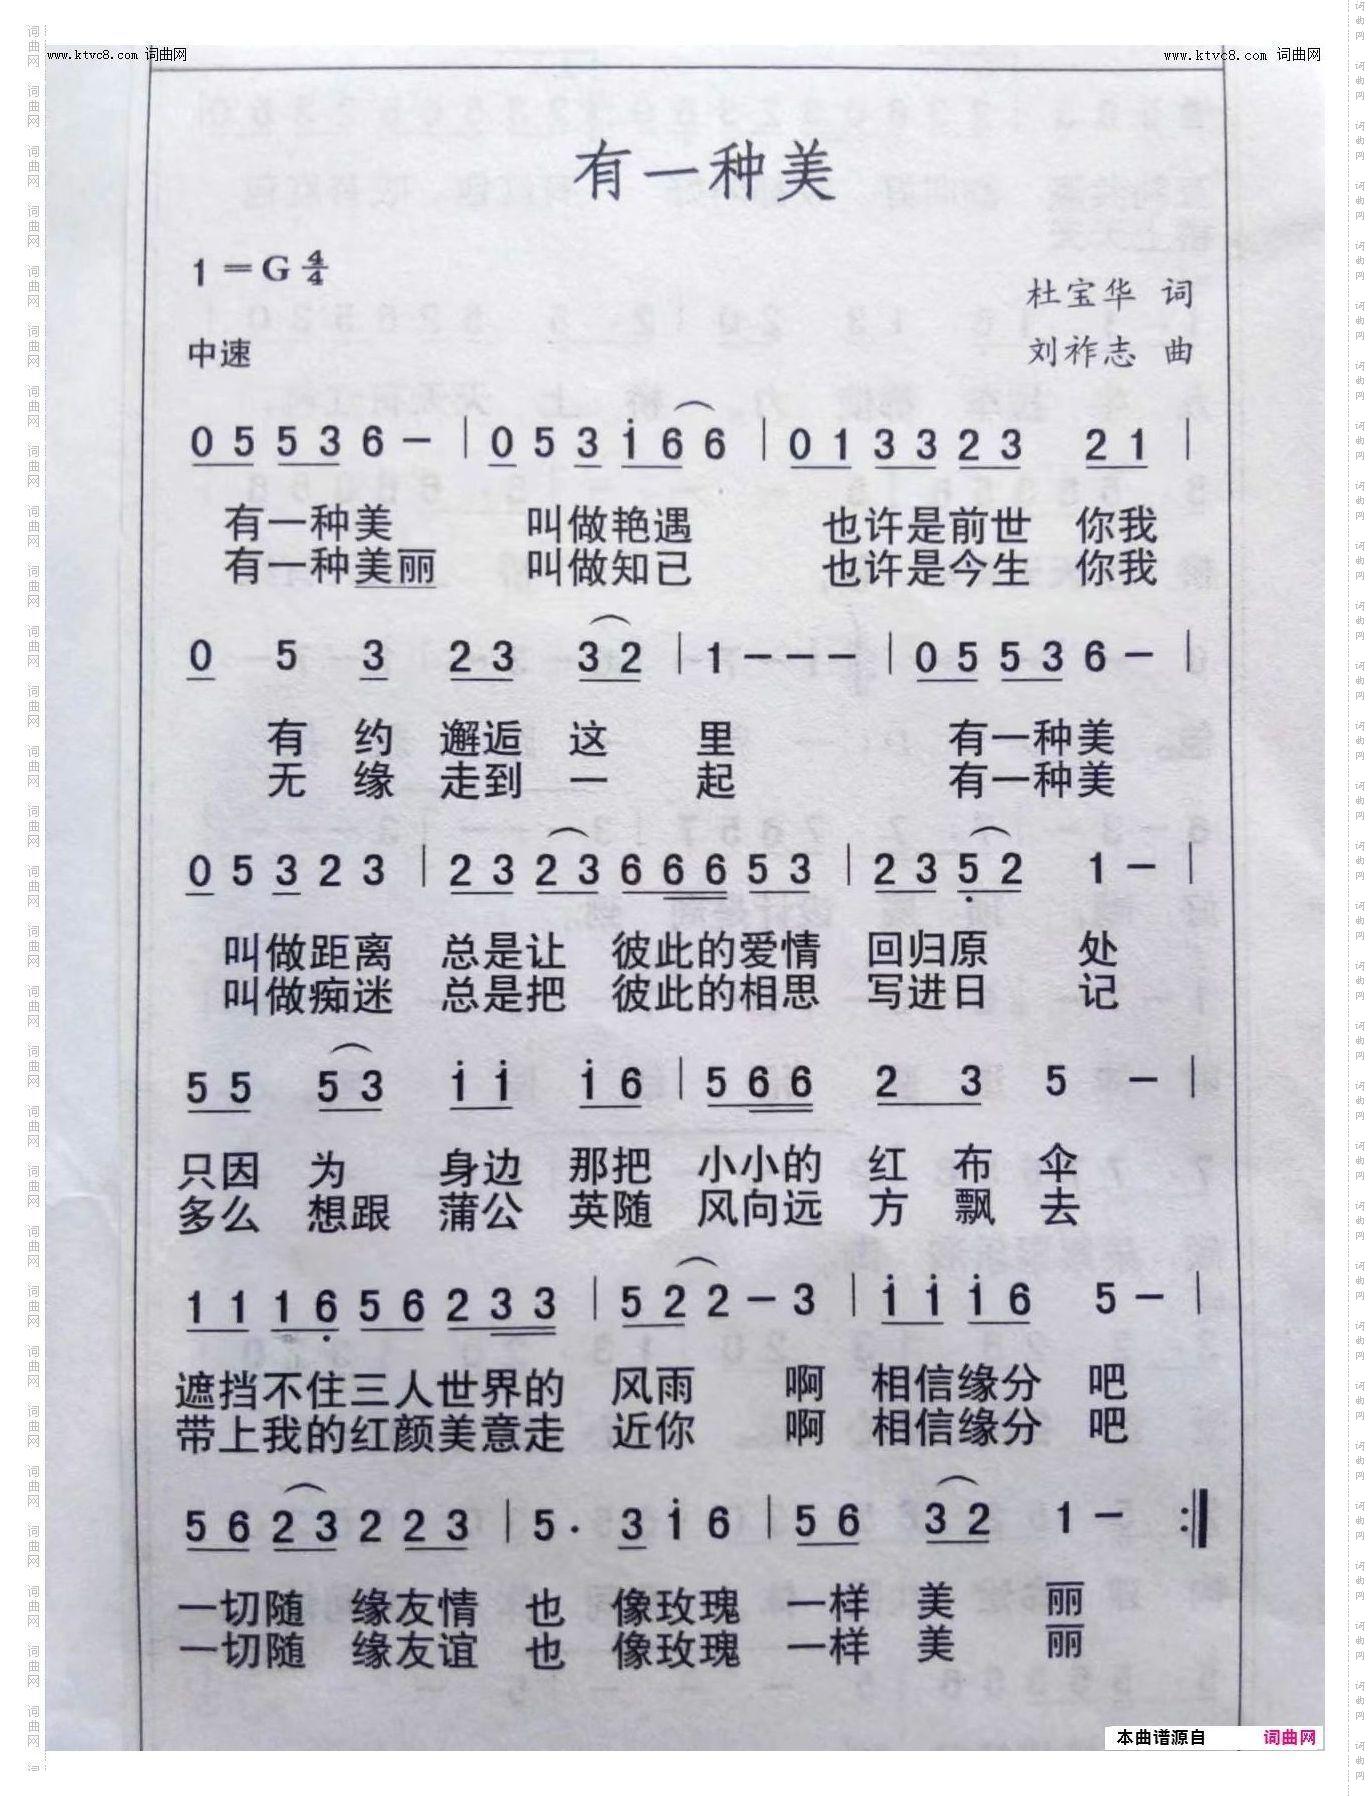 www.ktvc8.com 词曲网 www.ktvc8.com 词曲网
有一种美
1=G 4/4
杜宝华 词
中速
刘祚志 曲
0 5 5 3 6 - | 0 5 3 i 6 6 | 0 1 3 3 2 3 2 1 |
有一种美 叫做艳遇 也许是前世 你我
有一种美丽 叫做知已 也许是今生 你我
0 5 3 2 3 3 2 | 1 - - - | 0 5 5 3 6 - |
有 约 邂逅 这 里 有一种美
无 缘 走到 一 起 有一种美
0 5 3 2 3 | 2 3 2 3 6 6 6 5 3 | 2 3 5 2 1 - |
叫做距离 总是让 彼此的爱情 回归原 处
叫做痴迷 总是把 彼此的相思 写进日 记
5 5 5 3 i i i 6 | 5 6 6 2 3 5 - |
只因 为 身边 那把 小小的 红 布 伞
多么 想跟 蒲公 英随 风向远 方 飘 去
1 1 1 6 5 6 2 3 3 | 5 2 2 - 3 | i i i 6 5 - |
遮挡不住三人世界的 风雨 啊 相信缘分 吧
带上我的红颜美意走 近你 啊 相信缘分 吧
5 6 2 3 2 2 3 | 5 · 3 i 6 | 5 6 3 2 1 - :||
一切随 缘友情 也 像玫瑰 一样 美 丽
一切随 缘友谊 也 像玫瑰 一样 美 丽
本曲谱源自 词曲网